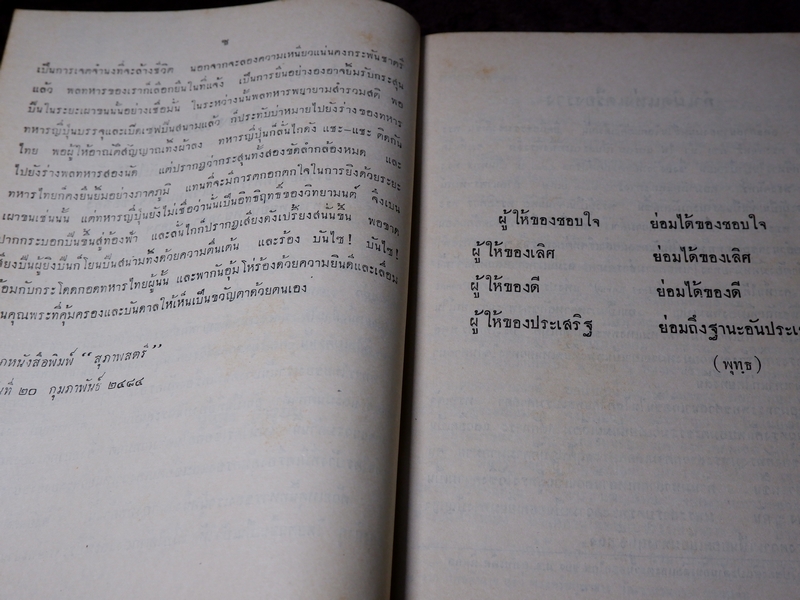 ซ
เป็นการเจตจำนงที่จะล้างชีวิต นอกจากจะลองความเหนียวแน่นคงกระพันชาตรี
แล้ว พลทหารของเราก็เลือกยืนในที่แจ้ง เป็นการยืนอย่างองอาจยิ้มรับกระสุน
ปืนในระยะเผาขนนั้นอย่างเชื่อมั่น ในระหว่างนั้นพลทหารพยายามสำรวมสติ พอ
ทหารญี่ปุ่นบรรจุและเบ็ดเซฟปืนสนามแล้ว ก็ประทับบ่าหมายไปยังร่างของทหาร
ไทย พอผู้ให้อาณัติสัญญาณทิ้งผ้าลง ทหารญี่ปุ่นก็ลั่นไกดัง แชะ-แชะ ติดกัน
ไปยังร่างพลทหารสองนัด แต่ปรากฏว่ากระสุนทั้งสองขัดลำกล้องหมด และ
ทหารไทยก็คงยืนยิ้มอย่างภาคภูมิ แทนที่จะมีการตกอกตกใจในการยิงด้วยระยะ
เผาขนเช่นนั้น แต่ทหารญี่ปุ่นยังไม่เชื่อว่านั่นเป็นอิทธิฤทธิ์ของวิทยามนต์ จึงเบน
ปากกระบอกปืนขึ้นสู่ท้องฟ้า และลั่นไกก็ปรากฏเสียงดังเปรี้ยงสนั่นขึ้น พอขาด
เสียงปืนผู้ยิงปืนก็โยนปืนสนามทิ้งด้วยความตื่นเต้น และร้อง บันไซ! บันไซ!
พร้อมกับกระโดดกอดทหารไทยผู้นั้น และพากันอุ้มโห่ร้องด้วยความยินดีและเลื่อม
ในคุณพระที่คุ้มครองและบันดาลให้เห็นเป็นขวัญตาด้วยตนเอง
กหนังสือพิมพ์ “สุภาพสตรี”
นที่ ๒๐ กุมภาพันธ์ ๒๔๘๔
ผู้ให้ของชอบใจ ย่อมได้ของชอบใจ
ผู้ให้ของเลิศ ย่อมได้ของเลิศ
ผู้ให้ของดี ย่อมได้ของดี
ผู้ให้ของประเสริฐ ย่อมถึงฐานะอันประเ
(พุทธ)